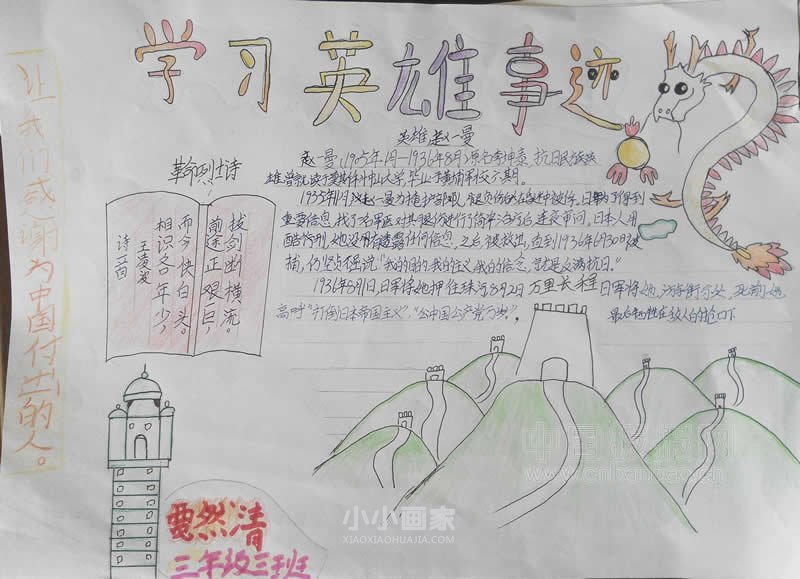 学习英雄事迹
让我们感谢为中国付出的人。
革命烈士诗
拔剑断横流。
前途正艰巨!
而今快白头。
相识各年少,
王凌波
诗一首
英雄赵一曼
赵一曼,1905年 1936年8月 原名李坤泰,抗日民族英
雄曾就读于莫斯科中山大学,毕业于黄埔军校六期。
重要信息,找了 军医对其腿伤进行了简单治疗后,连夜审问,日本人用
酷刑 她没有透露任何信息,之后被救出,直到1936年6月30日被
捕,仍坚贞不屈说"我的目的,我的主义,我的信念,就是反满抗日。"
1936年8月1日,日军将她押往珠河8月2日
日军将她
高呼"打倒日本帝国主义","中国共产党万岁"。
最后牺牲在敌人的枪口下
万里长程
中国
www.cnlxnbao.cn
小小画家
XIAOXIAOHUAJIA.COM
然清
三年级三班